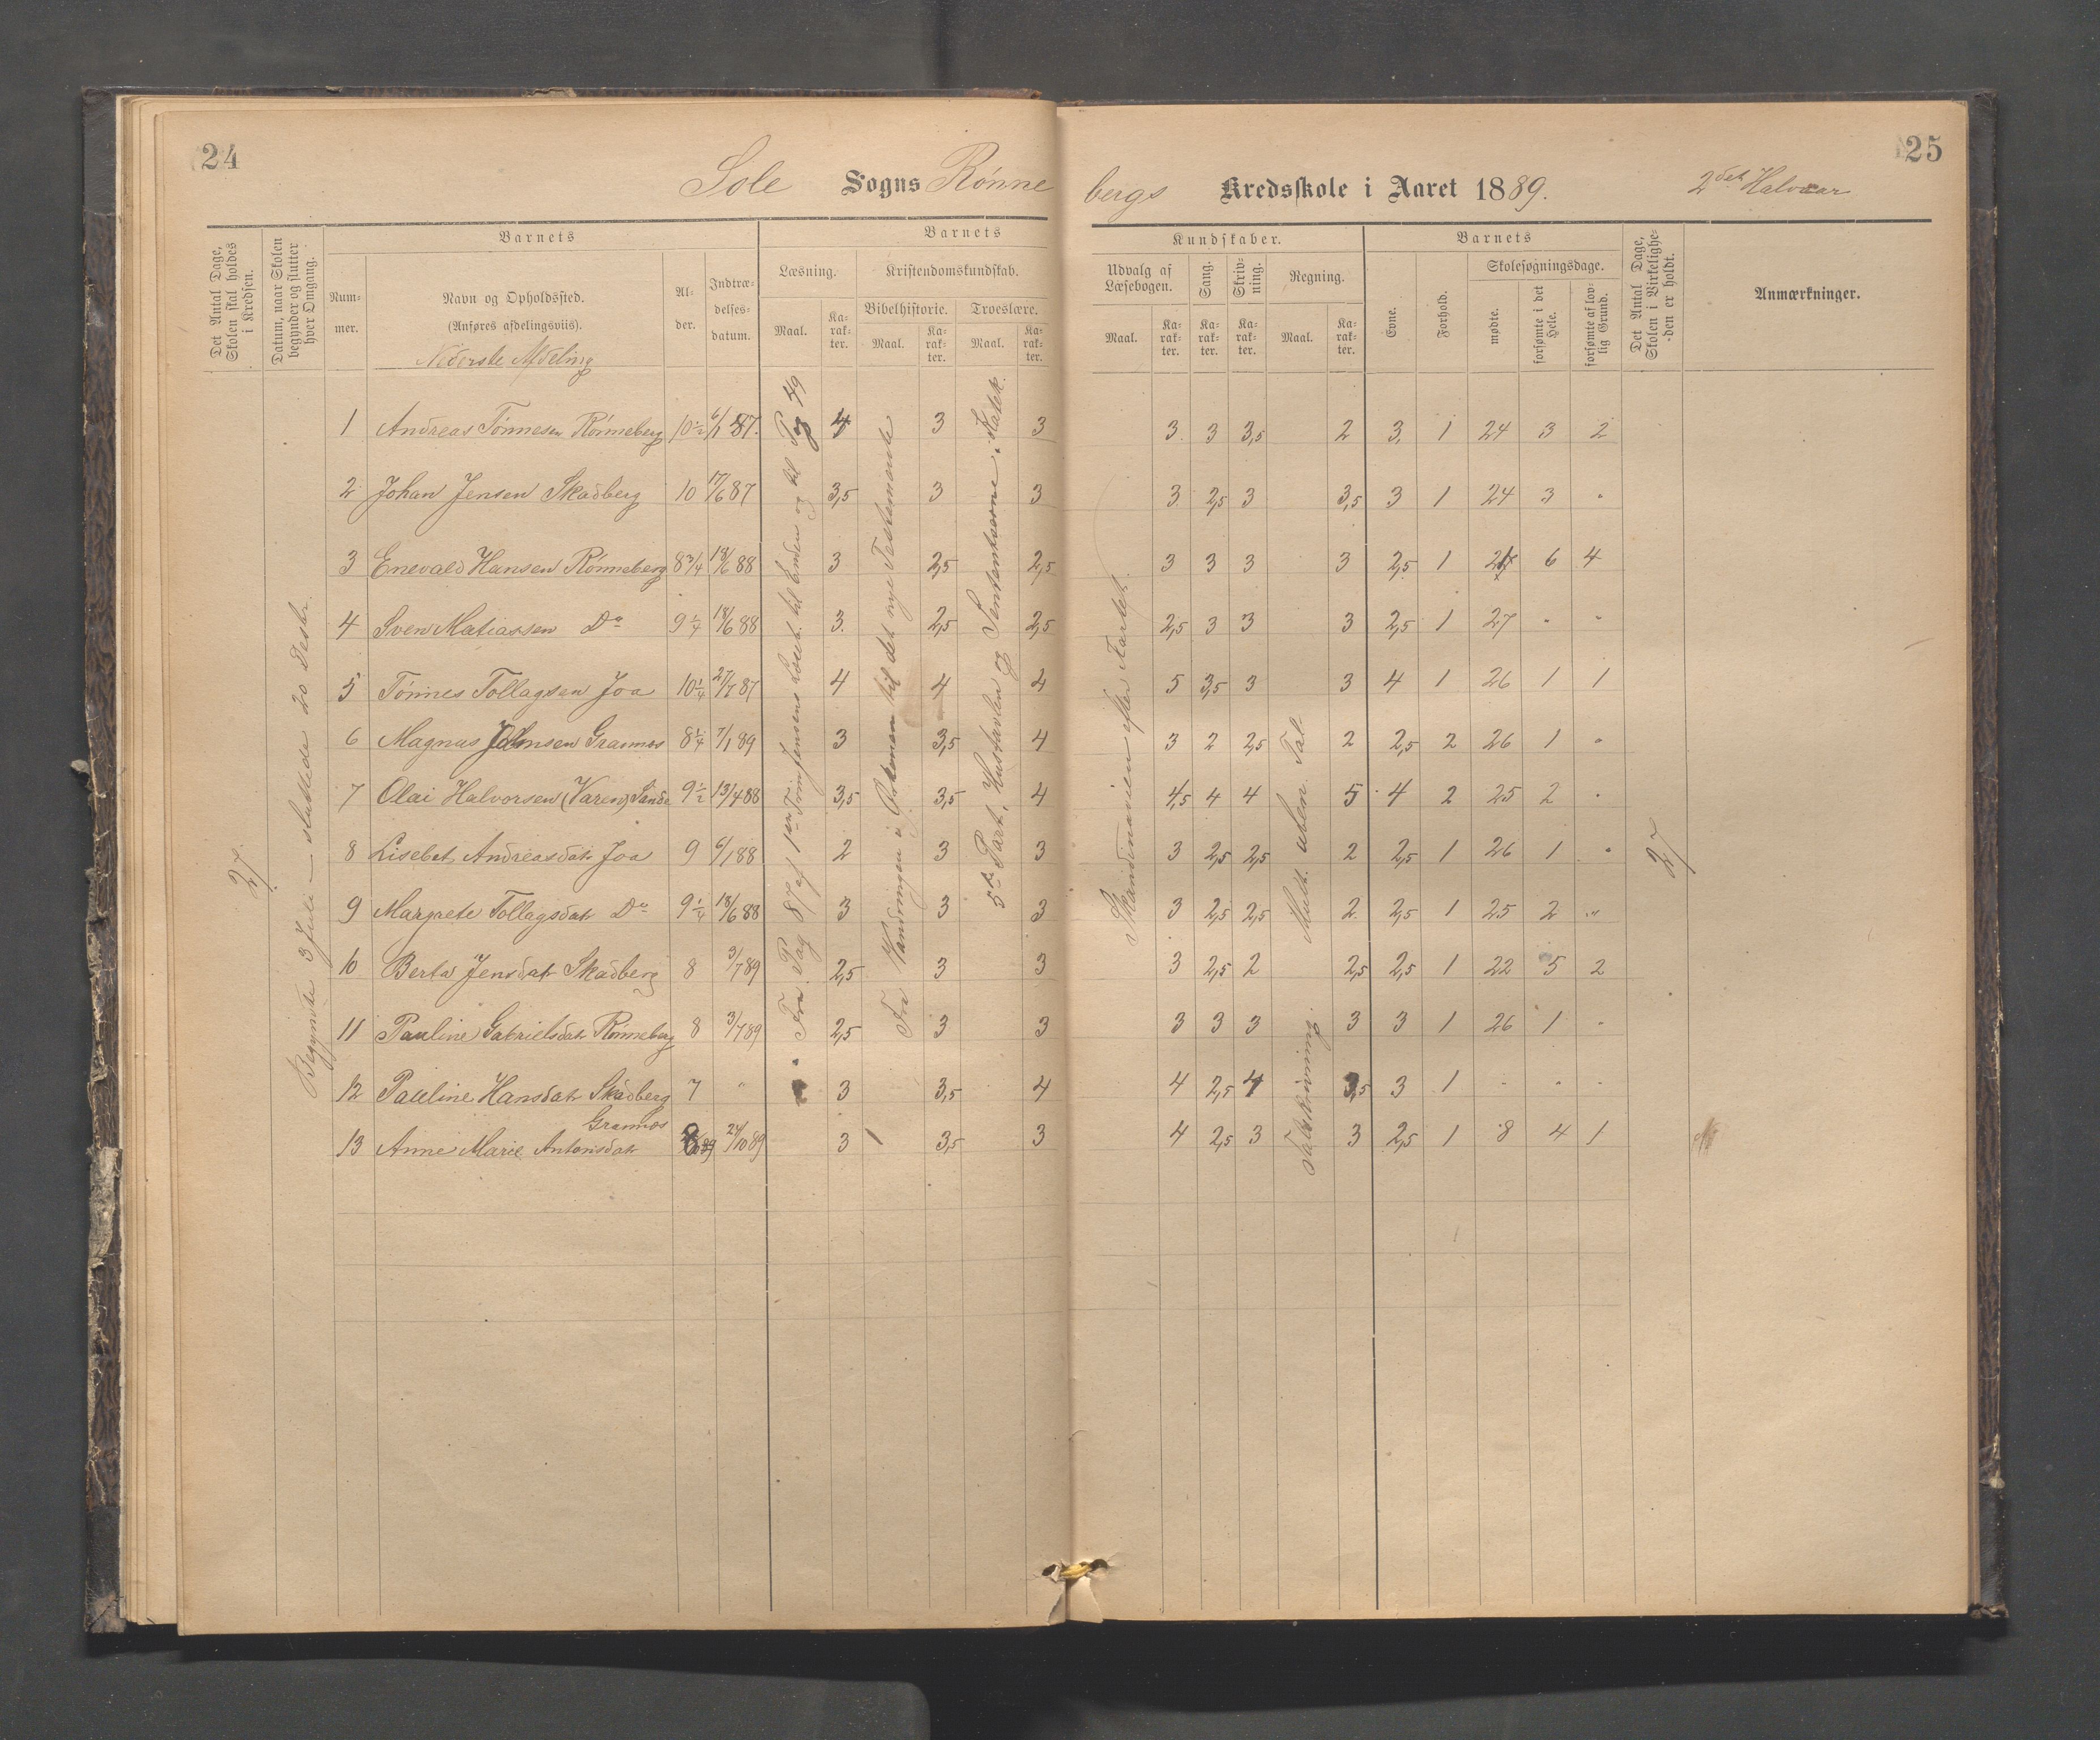 24
25
Sole Sogns Rönnebergs Kredsskole i Aaret 1889. 2det Halvaar
Det Antal Dage, Skolen skal holdes i Kredsen.
Datum, naar Skolen begynder og slutter hver Omgang.
Barnets
Nummer.
Navn og Opholdssted. (Anføres afdelingsviis).
Nederste Afdeling
Alder.
Indtrædelses-datum.
Barnets Kundskaber.
Læsning. Maal. Karakter.
Kristendomskundskab.
Bibelhistorie. Maal. Karakter.
Troeslære. Maal. Karakter.
Udvalg af Læsebogen. Maal. Karakter.
Sang. Karakter.
Skrivning. Karakter.
Regning. Maal. Karakter.
Barnets
Evne. Forhold.
Skolesøgningsdage. mødte. forsømte i det Hele. forsømte af lovlig Grund.
Det Antal Dage, Skolen i Virkeligheden er holdt.
Anmærkninger.
27
Begyndte 3 Juli – sluttede 20 Desbr.
Fra Pag 87 af 1ste Læseb. til Enden og til Pag 49
Fra Vandringen i Ørkenen til det nye Testamente
5te Part, Hustavlen og Sentenserne. Katek.
Skandinavien efter Kartet.
Mult. uben. Tal
Talskrivning.
27
1 Andreas Tönnesen Rönneberg 10½ 6/1 87. 4 3 3 3 3 3,5 2 3 1 24 3 2
2 Johan Jensen Skadberg 10 17/6 87 3,5 3 3 3 2,5 3 3,5 3 1 24 3 "
3 Enevald Hansen Rönneberg 8¾ 18/6 88 3 2,5 2,5 3 3 3 3 2,5 1 21 6 4
4 Sven Matiassen Do 9¼ 18/6 88 3 2,5 2,5 2,5 3 3 3 2,5 1 27 " "
5 Tönnes Tollagsen Joa 10¼ 27/7 87 4 4 4 5 3,5 3 3 4 1 26 1 1
6 Magnus Johnsen Grannes 8¼ 7/1 89 3 3,5 4 3 2 2,5 2 2,5 2 26 1 "
7 Olai Halvorsen (Varen) Sande 9½ 13/4 88 3,5 3,5 4 4,5 4 4 5 4 2 25 2 "
8 Lisebet Andreasdatr Joa 9 6/1 88 2 3 3 3 2,5 2,5 2 2,5 1 26 1 "
9 Margrete Tollagsdatr Do 9¼ 18/6 88 3 3 3 3 2,5 2,5 2 2,5 1 25 2 "
10 Berta Jensdatr Skadberg 8 3/7 89 2,5 3 3 3 2,5 2 2,5 2,5 1 22 5 2
11 Pauline Gabrielsdatr Rönneberg 8 3/7 89 2,5 3 3 3 3 3 3 3 1 26 1 "
12 Pauline Hansdatr Skadberg 7 " 3 3,5 4 4 2,5 4 3,5 3 1 " " "
13 Anne Marie Antonisdatr Grannes 8 24/10 89 3 3,5 3 4 2,5 3 3 2,5 1 8 4 1